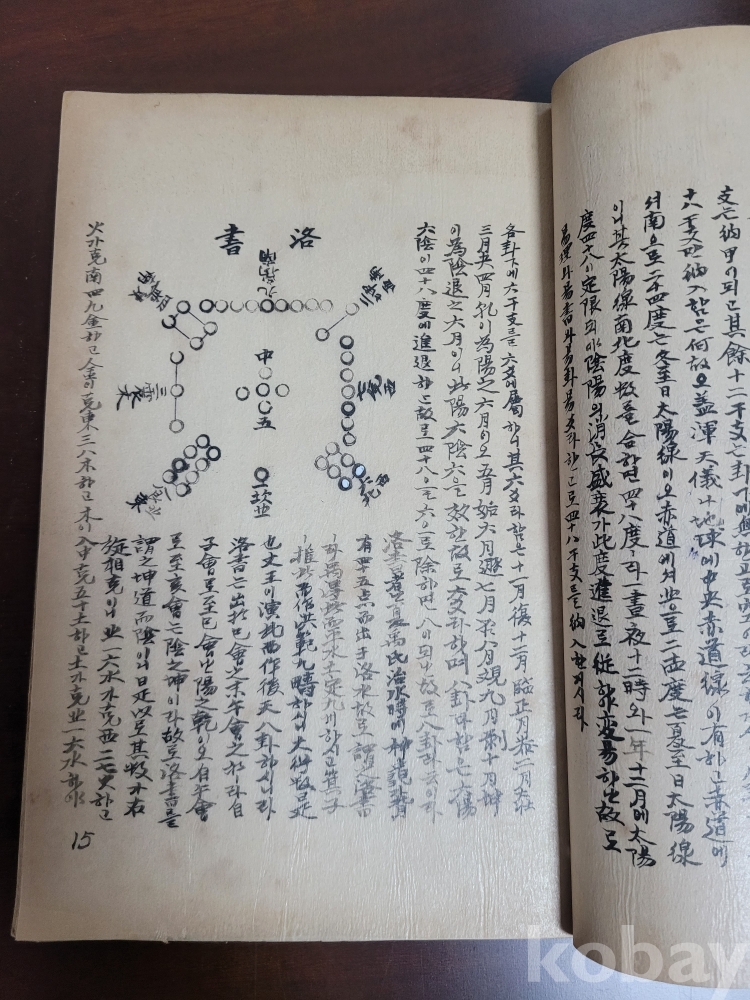 支는納甲이되고其餘十二干支는卦
十八干支만納入함은何故오盖渾天儀나地球에中央赤道線이有하고赤道에
셔南으로二十四度는冬至日太陽線이오赤道에셔北으로二十四度는夏至日太陽線
이니其太陽線南北度数를合하면四十八度라一晝夜十二時와一年十二月에太陽
度四十八이定限되며陰陽의消長盛衰가此度進退로從하야変易하는故로
易理와易書와易卦易爻라하고로四十八干支를納入한거시라
各卦下에六干支를六爻에屬하니其六爻라함은十一月復十二月臨正月泰二月大壯
三月夬四月乾이為陽之六月이오五月姤六月遯七月否八月观九月剝十月坤
이為陰退之六月이니此陽六陰六을效한故로六爻라하며八卦라함은六陽
六陰이四十八度에進退하는故로四十八을六으로除하면八이되는故로八卦라云이라
洛書
九离南
西
七兌
西北
中
五
一坎北
三震
東
洛書者는夏禹氏治水時에神龜背
有四十五点而出于洛水故로謂之洛書
라禹得此而平水土定九州하시고箕子
推此而作洪範九疇하시니大衍数是
也오文王이演此而作後天八卦하시니라
洛書는出於巳會之末午會之初라自
子會로至巳會는陽之乾이오自午會
로至亥會는陰之坤이라故로洛書를
謂之坤道而陰이니是以로其数가右
旋相克이니北一六水가克西二七火하고
火가克南四九金하고金이克東三八木하고木이入中克五十土하고土가克北一六水하야
15
kobay